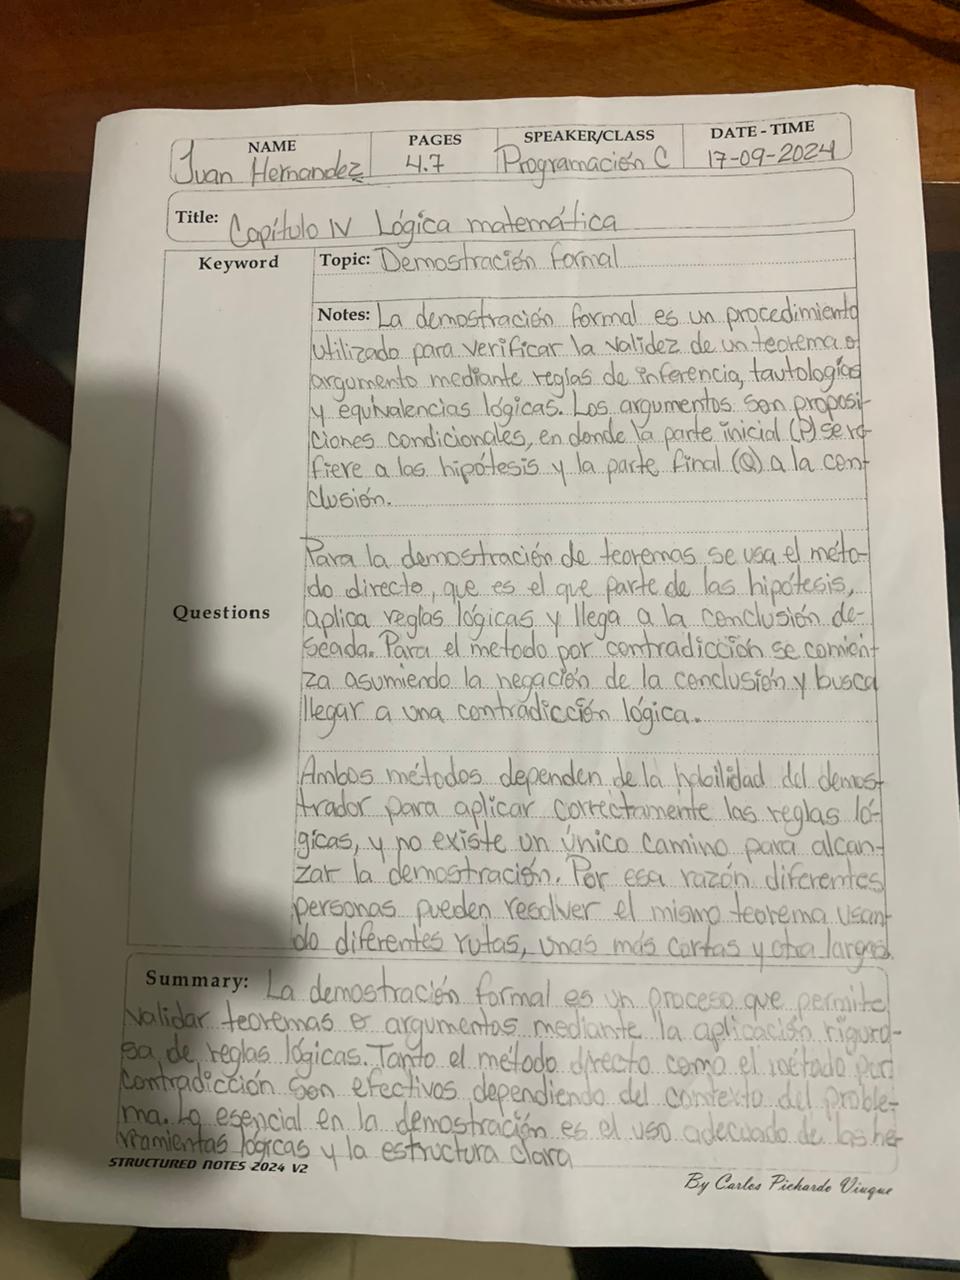 NAME PAGES SPEAKER/CLASS DATE - TIME
Juan Hernandez 4.7 Programación C 17-09-2024
Title: Capítulo IV Lógica matemática
Keyword Topic: Demostración formal
Notes: La demostración formal es un procedimiento
utilizado para verificar la validez de un teorema o
argumento mediante reglas de inferencia, tautologías
y equivalencias lógicas. Los argumentos son proposi-
ciones condicionales, en donde la parte inicial (P) se re-
fiere a las hipótesis y la parte final (Q) a la con-
clusión.
Para la demostración de teoremas se usa el méto-
do directo, que es el que parte de las hipótesis,
Questions aplica reglas lógicas y llega a la conclusión de-
seada. Para el metodo por contradicción se comien-
za asumiendo la negación de la conclusión y busca
llegar a una contradicción lógica.
Ambos métodos dependen de la habilidad del demos-
trador para aplicar correctamente las reglas ló-
gicas, y no existe un único camino para alcan-
zar la demostración. Por esa razón diferentes
personas pueden resolver el mismo teorema usan-
do diferentes rutas, unas más cortas y otra largas.
Summary: La demostración formal es un proceso que permite
validar teoremas o argumentos mediante la aplicación riguro-
sa de reglas lógicas. Tanto el método directo como el método por
contradicción son efectivos dependiendo del contexto del proble-
ma. Lo esencial en la demostración es el uso adecuado de las he-
rramientas lógicas y la estructura clara
STRUCTURED NOTES 2024 V2
By Carlos Pichardo Viuque